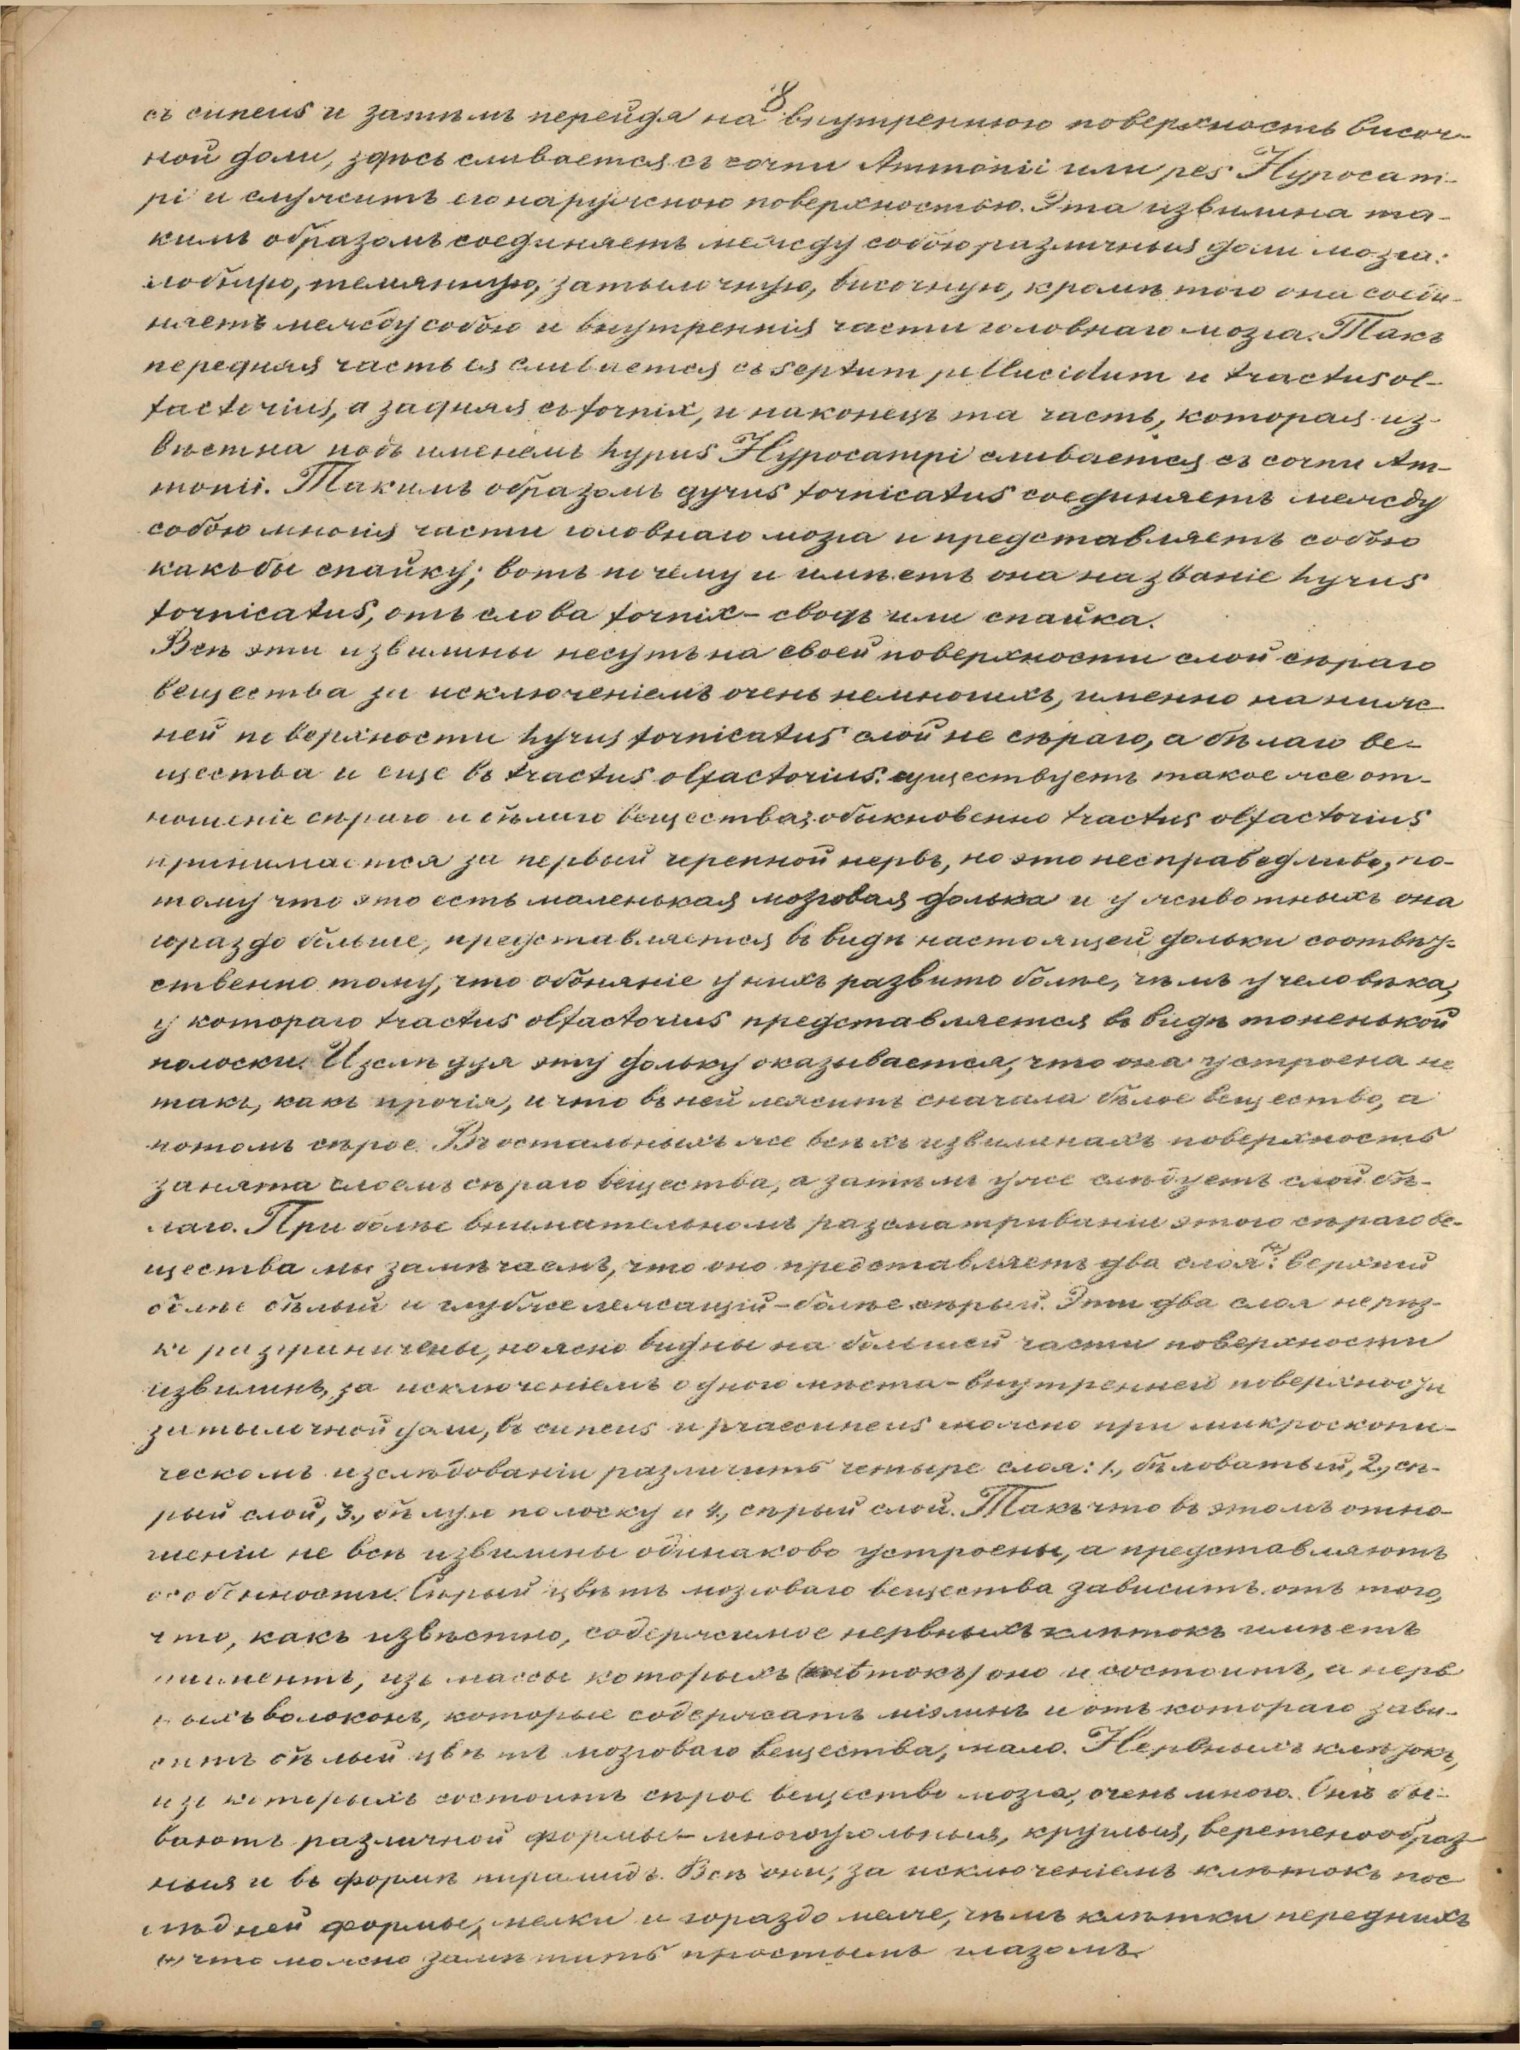 8
съ cuneus и затѣмъ перейдя на внутреннюю поверхность височ-
ной доли, здѣсь сливается съ cornu Ammonii или pes Hypocam-
pi и служитъ его наружною поверхностью. Эта извилина та-
кимъ образомъ соединяетъ между собою различныя доли мозга:
лобную, темянную, затылочную, височную, кромѣ того она соеди-
няетъ между собою и внутреннія части головнаго мозга. Такъ
передняя часть ея сливается съ septum pellucidum и tractus ol-
factorius, а задняя съ fornix, и наконецъ та часть, которая из-
вѣстна подъ именемъ hyrus Hypocampi сливается съ cornu Am-
monii. Такимъ образомъ gyrus fornicatus соединяетъ между
собою многія части головнаго мозга и представляетъ собою
какъ бы спайку; вотъ почему и имѣетъ она названіе hyrus
fornicatus, отъ слова fornix – сводъ или спайка.
Всѣ эти извилины несутъ на своей поверхности слой сѣраго
вещества за исключеніемъ очень немногихъ, именно на ниж-
ней поверхности hyrus fornicatus слой не сѣраго, а бѣлаго ве-
щества и еще въ tractus olfactorius существуетъ такое же от-
ношеніе сѣраго и бѣлаго вещества; обыкновенно tractus olfactorius
принимается за первый черепной нервъ, но это несправедливо, по-
тому что это есть маленькая мозговая долька и у животныхъ она
гораздо больше, представляется въ видѣ настоящей дольки соотвѣт-
ственно тому, что обоняніе у нихъ развито болѣе, чѣмъ у человѣка,
у котораго tractus olfactorius представляется въ видѣ тоненькой
полоски. Изслѣдуя эту дольку оказывается, что она устроена не
такъ, какъ прочія, и что въ ней лежитъ сначала бѣлое вещество, а
потомъ сѣрое. Въ остальныхъ же всѣхъ извилинахъ поверхность
занята слоемъ сѣраго вещества, а затѣмъ уже слѣдуетъ слой бѣ-
лаго. При болѣе внимательномъ разсматриваніи этого сѣраго ве-
щества мы замѣчаемъ, что оно представляетъ два слоя(*): верхній
болѣе бѣлый и глубже лежащій – болѣе сѣрый. Эти два слоя не рѣз-
ко разграничены, но ясно видны на большей части поверхности
извилинъ, за исключеніемъ одного мѣста – внутренней поверхности
затылочной доли, въ cuneus и praecuneus можно при микроскопи-
ческомъ изслѣдованіи различить четыре слоя: 1., бѣловатый, 2., сѣ-
рый слой, 3., бѣлую полоску и 4., сѣрый слой. Такъ что въ этомъ отно-
шеніи не всѣ извилины одинаково устроены, а представляютъ
особенности. Сѣрый цвѣтъ мозговаго вещества зависитъ отъ того,
что, какъ извѣстно, содержимое нервныхъ клѣтокъ имѣетъ
пигментъ, изъ массы которыхъ (клѣтокъ) оно и состоитъ, а нерв-
ныхъ волоконъ, которые содержатъ міэлинъ и отъ котораго зави-
ситъ бѣлый цвѣтъ мозговаго вещества, мало. Нервныхъ клѣтокъ,
изъ которыхъ состоитъ сѣрое вещество мозга, очень много. Онѣ бы-
ваютъ различной формы – многоугольныя, круглыя, веретенообраз-
ныя и въ формѣ пирамидъ. Всѣ они, за исключеніемъ клѣтокъ пос-
лѣдней формы, мелки и гораздо мельче, чѣмъ клѣтки переднихъ
(*) что можно замѣтить простымъ глазомъ.